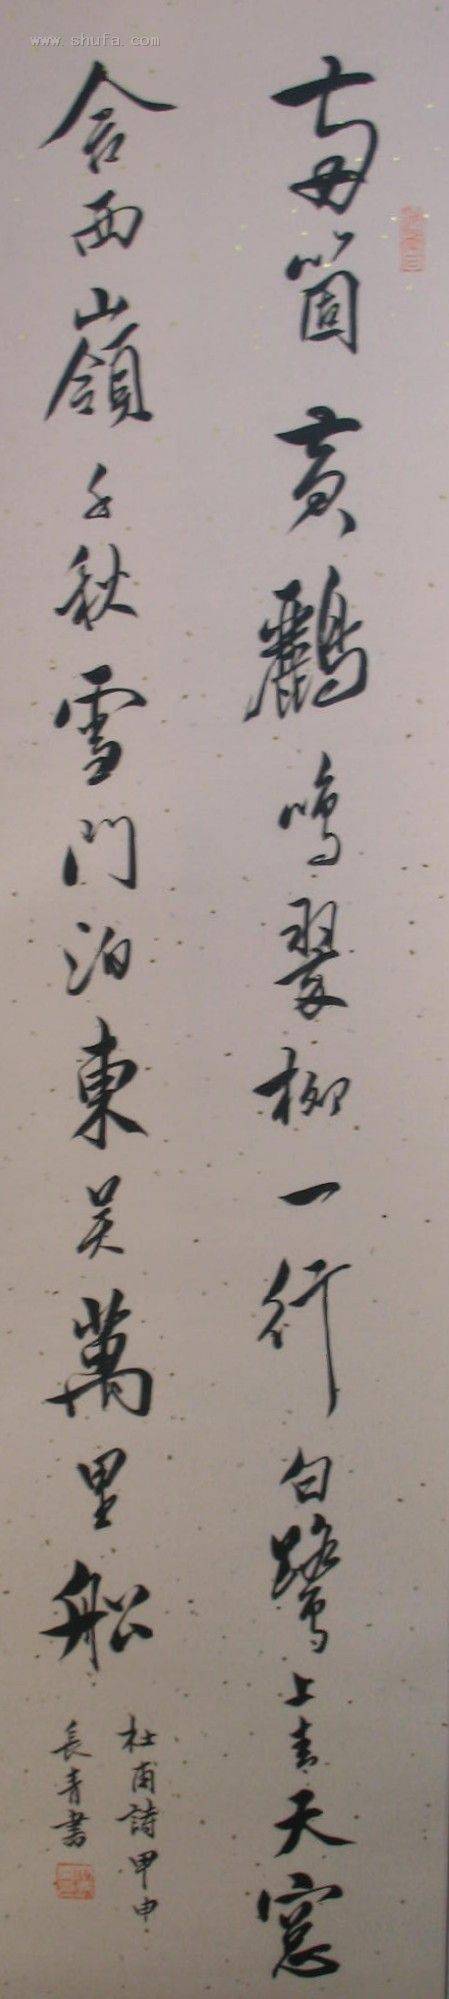 www.shufa.com
兩箇黃鸝鳴翠柳一行白鷺上青天窓
含西嶺千秋雪門泊東吳萬里船
杜甫詩甲申
長青書